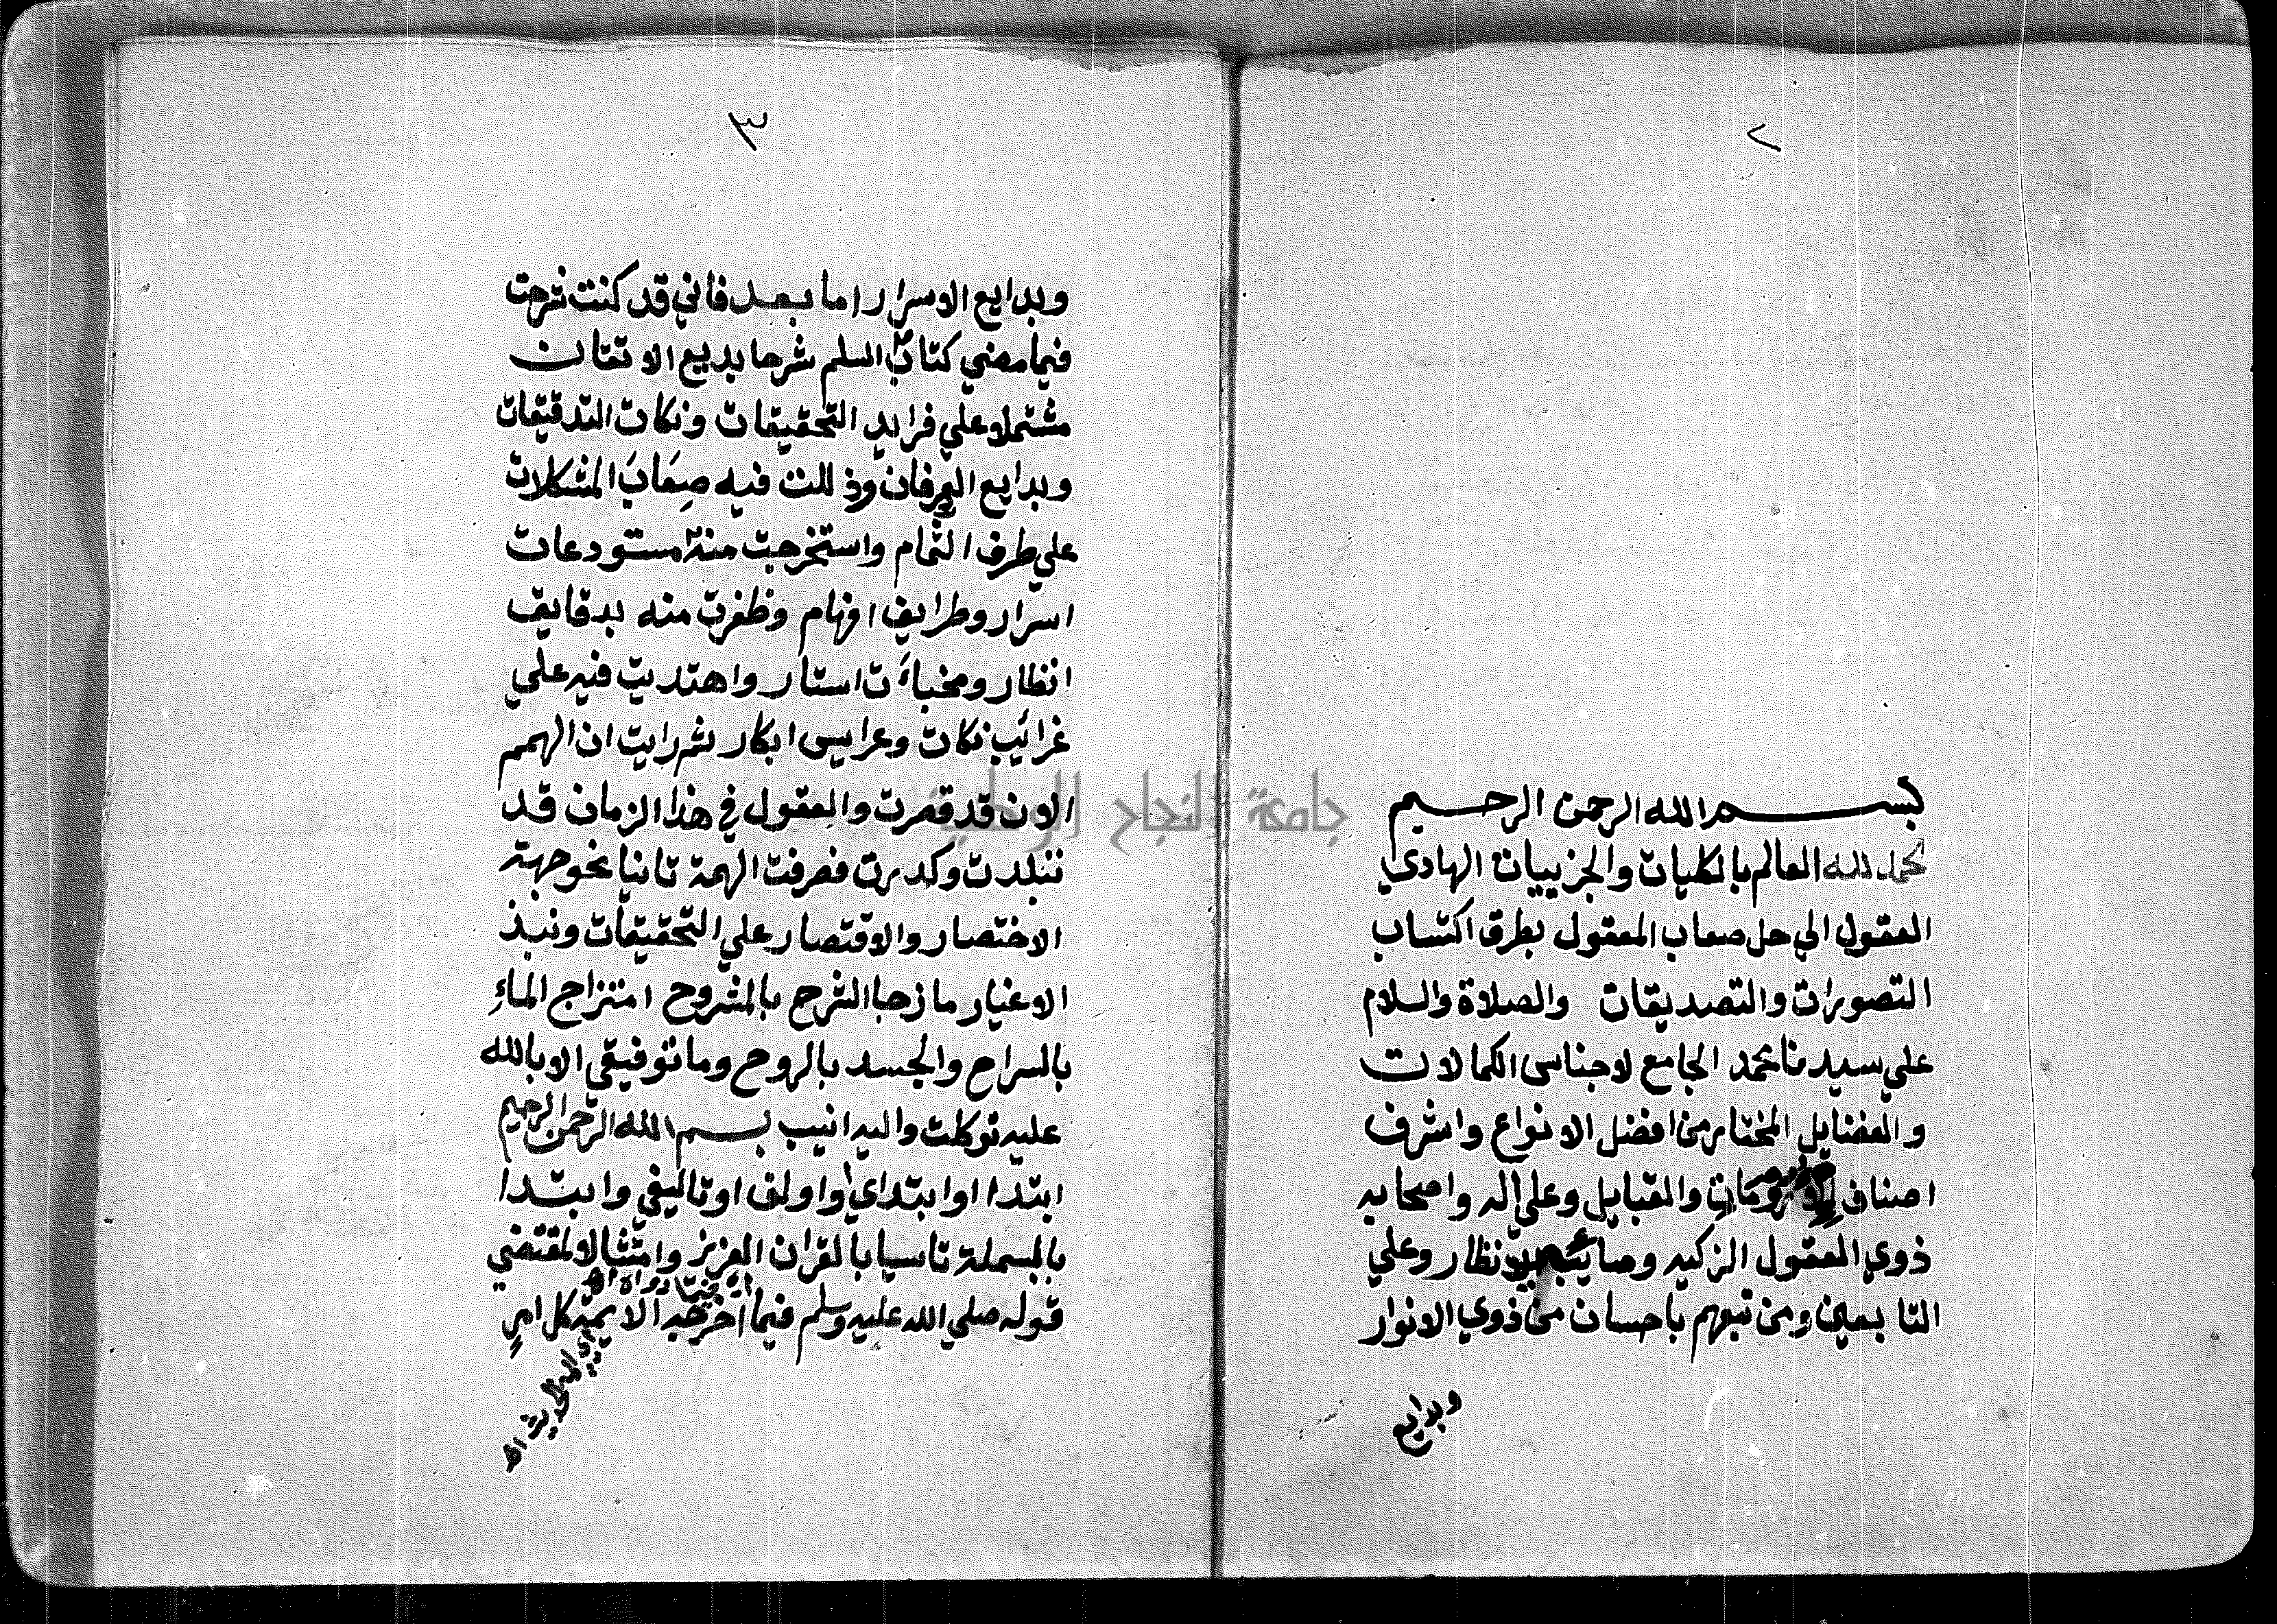 ٢
بسم الله الرحمن الرحيم
نحمد لله العالم بالكليات والجزييات الهادي
العقول الي حل صعاب المعقول بطرق اكتساب
التصورات والتصديقات والصلاة والسلام
علي سيدنا محمد الجامع لاجناس الكمالات
والفضايل المختار من افضل الانواع واشرف
اصناف والقبايل وعلي اله واصحابه
ذوي العقول الزكيه وصائب الانظار وعلي
التابعين ومن تبعهم باحسان من ذوي الانوار
وبدايع
٣
وبدايع الاسرار اما بعد فاني قد كنت شرحت
فيما مضي كتاب السلم شرحا بديع الاتقان
مشتملا علي فرايد التحقيقات ونكات التدقيقات
وبدايع العرفان وذللت فيه صعاب المشكلات
علي طرف الثمام واستخرجت منه مستودعات
اسرار وطرايف افهام وظفرت منه بدقايق
انظار ومخبات استار واهتديت فيه علي
غرائب نكات وعرايس ابكار ثم رايت ان الهمم
الان قد قصرت والعقول في هذا الزمان قد
تبلدت وكدرت فصرفت الهمة ثانيا نحو جهة
الاختصار والاقتصار علي التحقيقات ونبذ
الاغيار مازجا الشرح بالمشروح امتزاج الماء
بالسراح والجسد بالروح وما توفيقي الا بالله
عليه توكلت واليه انيب بسم الله الرحمن الرحيم
ابتدا او ابتداي او اولف او تاليفي وابتدا
بالبسملة تاسيا بالقران العزيز وامتثالا لمقتضي
قوله صلي الله عليه وسلم فيما اخرجه الايمة كل امر